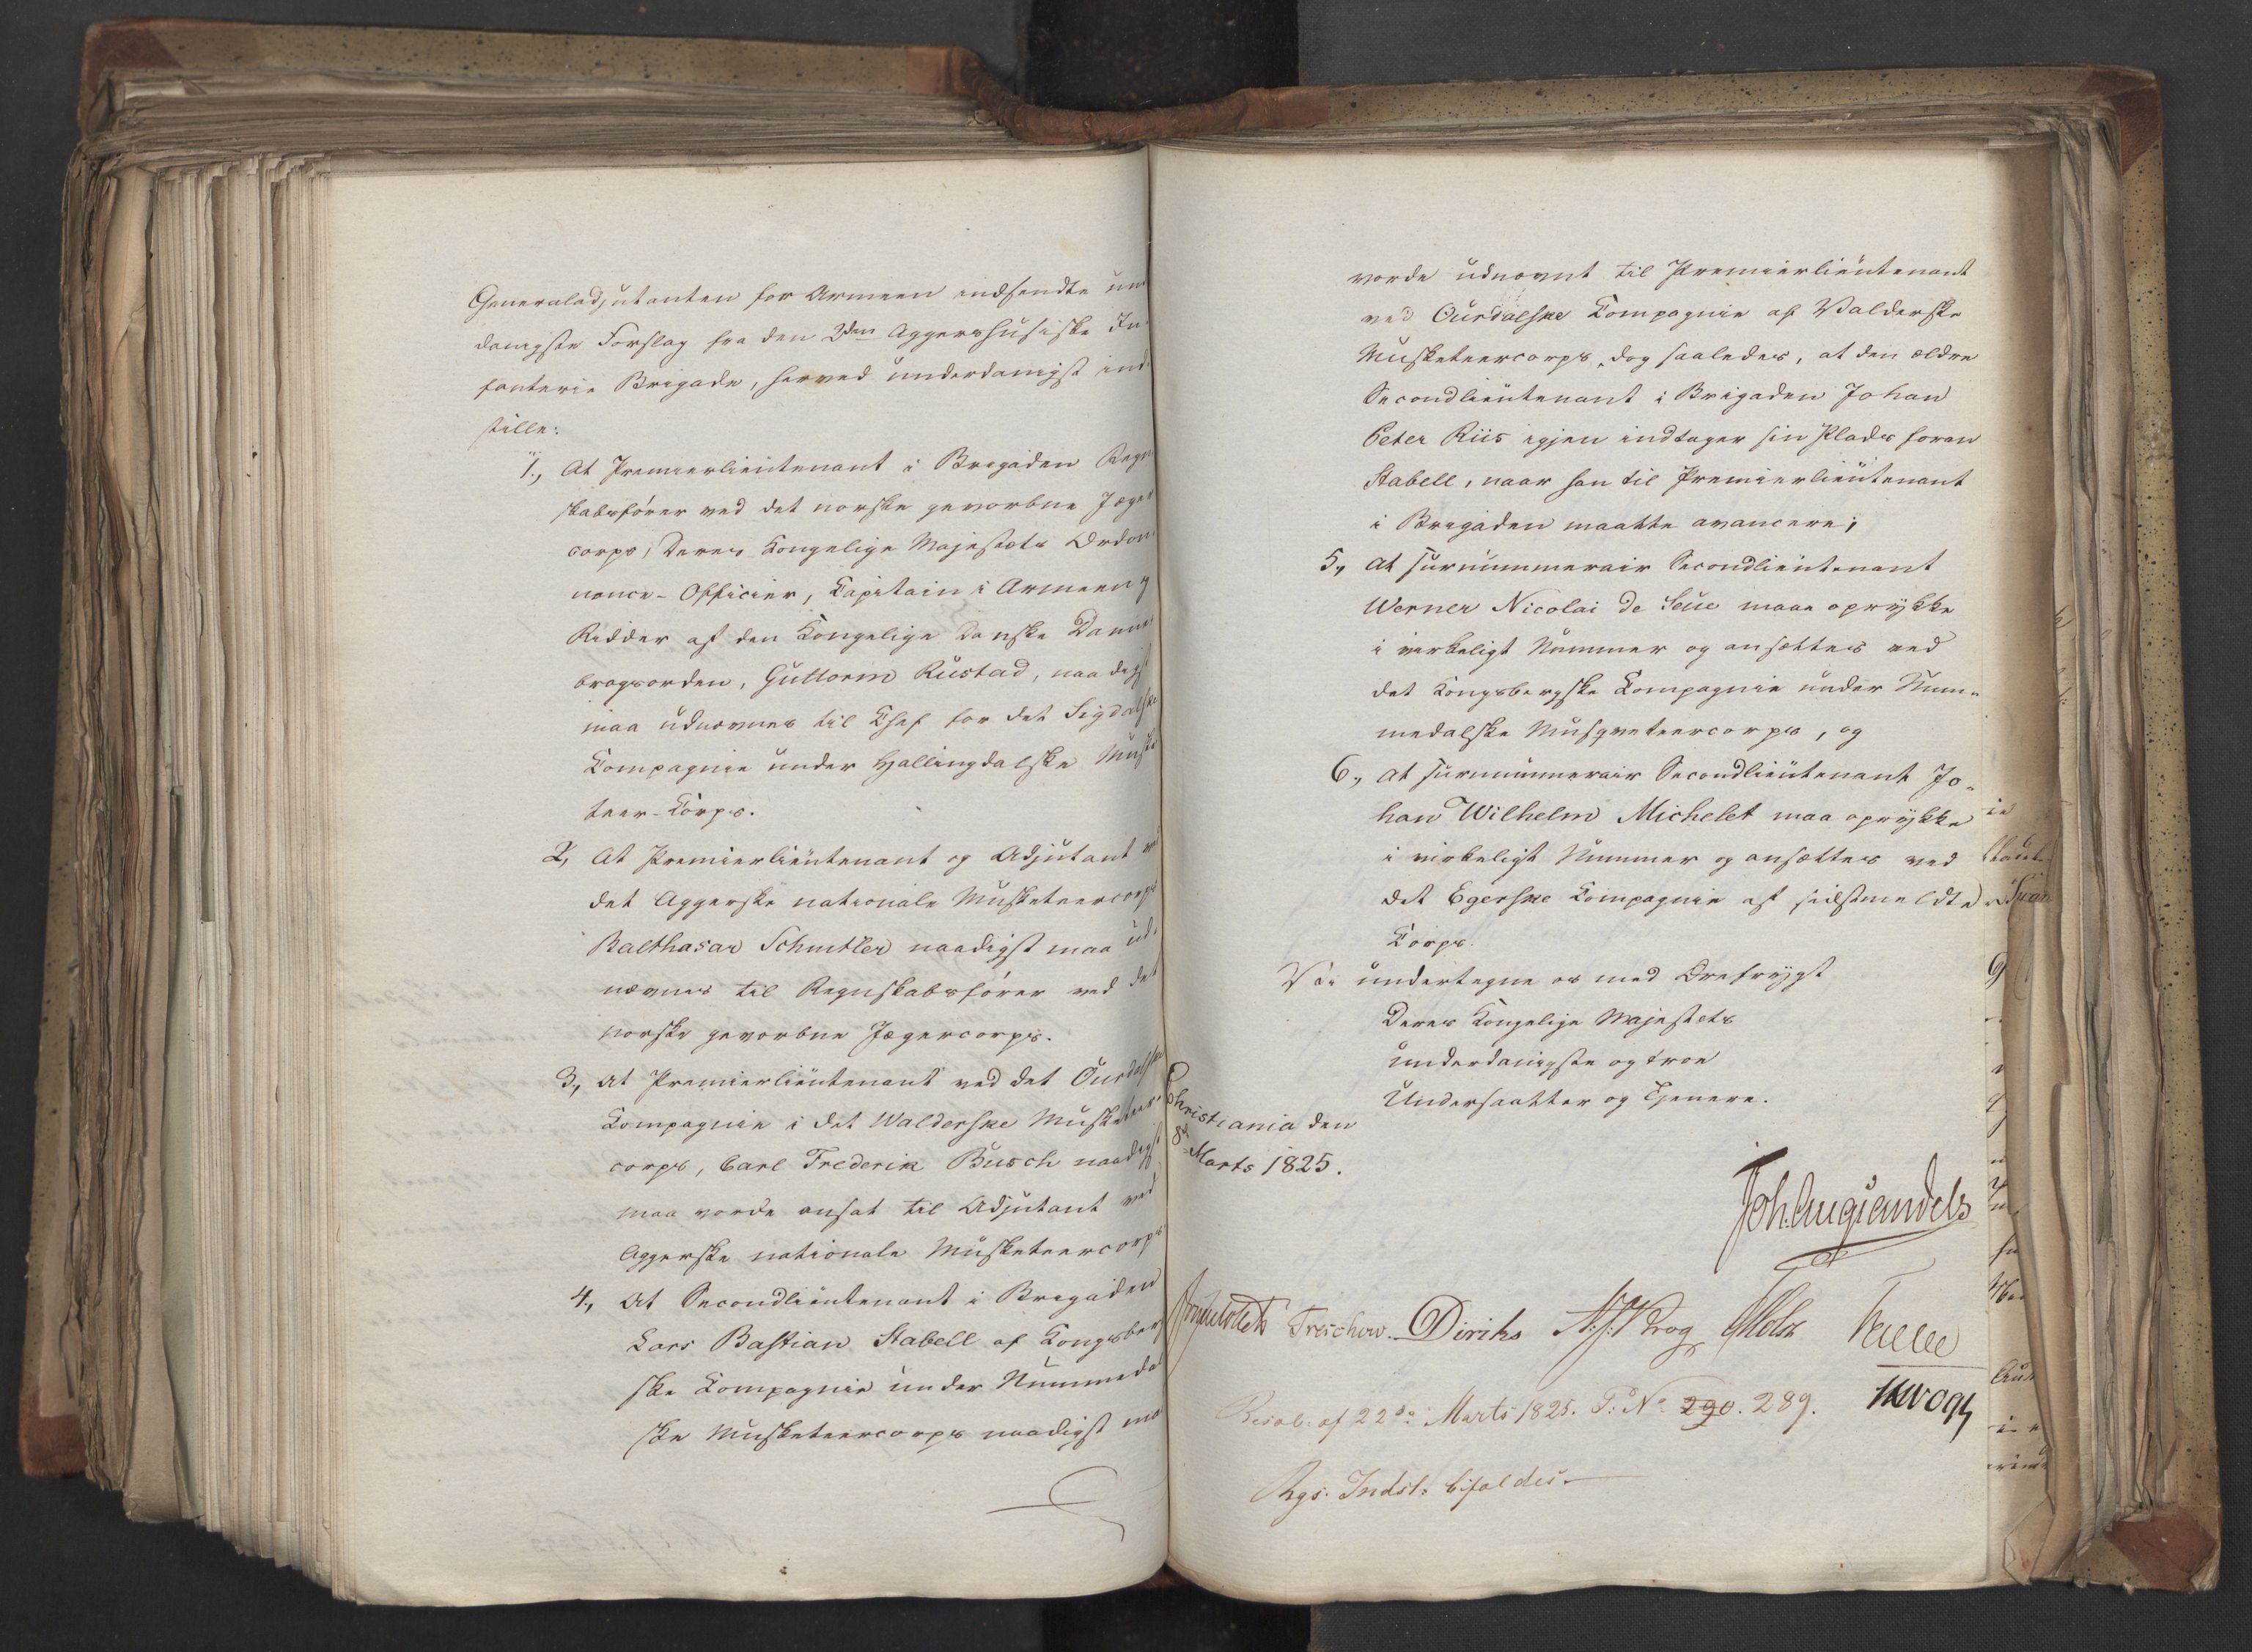 Generaladjutanten for Armeen indsendte un
danigste Forslag fra den 2den Aggershusiske In-
fanterie Brigade, herved underdanigst ind-
stille:
1., At Premierlieutenant i Brigaden Regn
skabsfører ved det norske gevorbne Jæger
corps, Deres Kongelige Majestæts Ordon-
nance-Officier, Capitain i Armeen og
Ridder af den Kongelige Danske Danne
brogsorden, Guttorm Rustad, naadigst
maa udnævnes til Chef for det Sigdalske
Compagnie under Hallingdalske Muske
teer-Corps.
2, At Premierlieutenant og Adjutant ved
det Aggerske nationale Musketeercorps
Balthasar Schnitler naadigst maa ud-
nævnes til Regnskabsfører ved det
norske gevorbne Jægercorps.
3, At Premierlieutenant ved det Ourdalske
Compagnie i det Walderske Musketeer-
corps, Carl Frederik Busch naadigst
maa vorde ansat til Adjutant ved
Aggerske nationale Musketeercorps
4, At Secondlieutenant i Brigaden
Lars Bastian Stabell af Kongsberg
ske Compagnie under Nummedal
ske Musketeercorps naadigst maa
vorde udnævnt til Premierlieutenant
ved Ourdalske Compagnie af Valderske
Musketeercorps, dog saaledes, at den ældre
Secondlieutenant i Brigaden Johan
Peter Riis igjen indtager sin Plads foran
Stabell, naar han til Premierlieutenant
i Brigaden maatte avancere;
5, At surnummerair Secondlieutenant
Werner Nicolai de Seue maae oprykke
i virkeligt Nummer og ansættes ved
det Kongsbergske Compagnie under Num-
medalske Musqueteercorps, og
6, At surnummerair Secondlieutenant Jo-
han Wilhelm Michelet maa oprykke
i virkeligt Nummer og ansættes ved
det Egerske Compagnie af sidstmeldte
Corps.
Vi undertegne os med Ærefrygt
Deres Kongelige Majestæts
underdanigste og troe
Undersaatter og Tjenere.
Christiania den
8de Marts 1825.
Joh. Aug Sandels
Treschow. Diriks
Resol: af 22de Marts 1825. P: No 290. 289.
Rgs. Indst: bifaldes